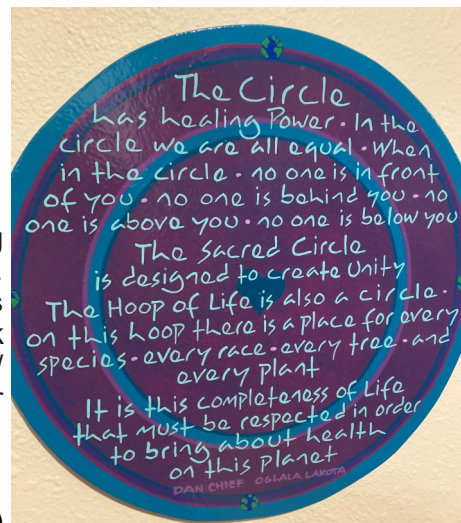 The Circle
has healing Power • In the
circle we are all equal • When
in the circle • no one is in front
of you • no one is behind you • no
one is above you • no one is below you
The Sacred Circle
is designed to create Unity
The Hoop of Life is also a circle •
on this hoop there is a place for every
species • every race • every tree • and
every plant
It is this completeness of Life
that must be respected in order
to bring about health
on this planet
DAN CHIEF OGLALA LAKOTA